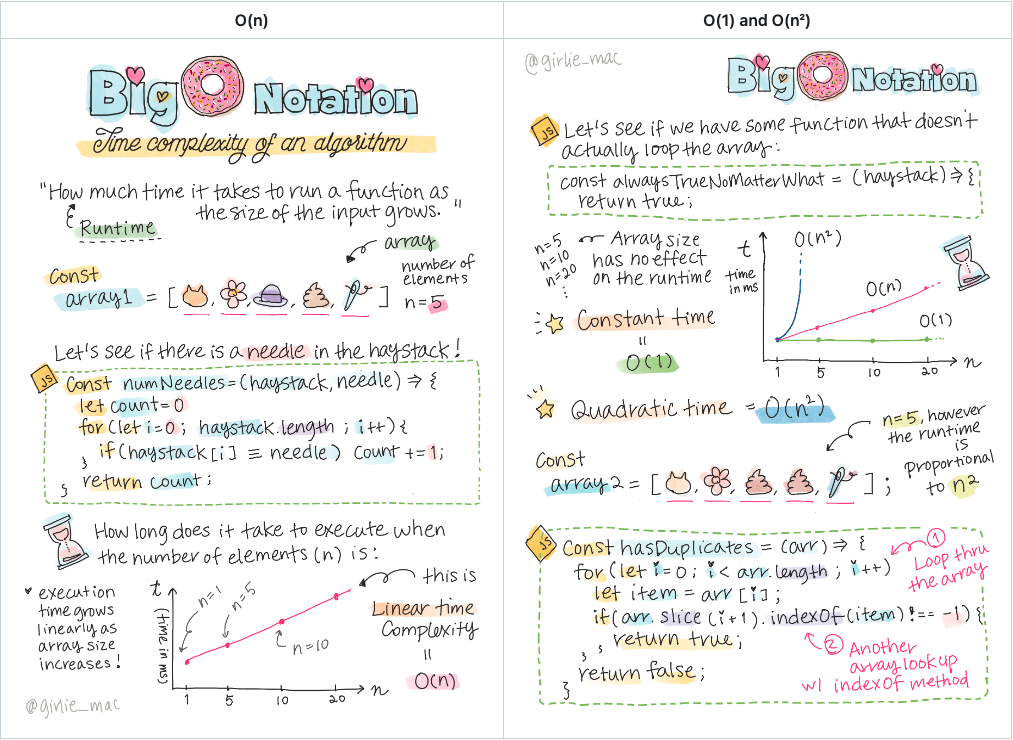 O(n)
Big O Notation
Time complexity of an algorithm
"How much time it takes to run a function as
the size of the input grows."
Runtime
array
number of
elements
n=5
Const
array1 = [ , , , , ]
Let's see if there is a needle in the haystack!
JS
Const numNeedles = (haystack, needle) => {
let count = 0
for (let i=0; haystack.length; i++) {
if (haystack[i] ≡ needle) Count += 1;
}
return count;
}
How long does it take to execute when
the number of elements (n) is:
execution
time grows
linearly as
array size
increases!
t
(time in ms)
n=1
n=5
n=10
1 5 10 20 n
this is
Linear time
Complexity
=
O(n)
@girlie_mac
O(1) and O(n²)
@girlie_mac
Big O Notation
JS
Let's see if we have some function that doesn't
actually loop the array:
const alwaysTrueNoMatterWhat = (haystack) => {
return true;
n=5
n=10
n=20
⋮
Array size
has no effect
on the runtime
Constant time
=
O(1)
t
time
in ms
O(n²)
O(n)
O(1)
1 5 10 20 n
Quadratic time = O(n²)
n=5, however
the runtime
is
proportional
to n2
Const
array2 = [ , , , , ];
JS
Const hasDuplicates = (arr) => {
for (let i=0; i< arr.length; i++)
let item = arr[i];
if(arr.slice(i+1).indexOf(item) !== -1) {
return true;
} }
return false;
}
① Loop thru
the array
② Another
array lookup
w/ indexOf method